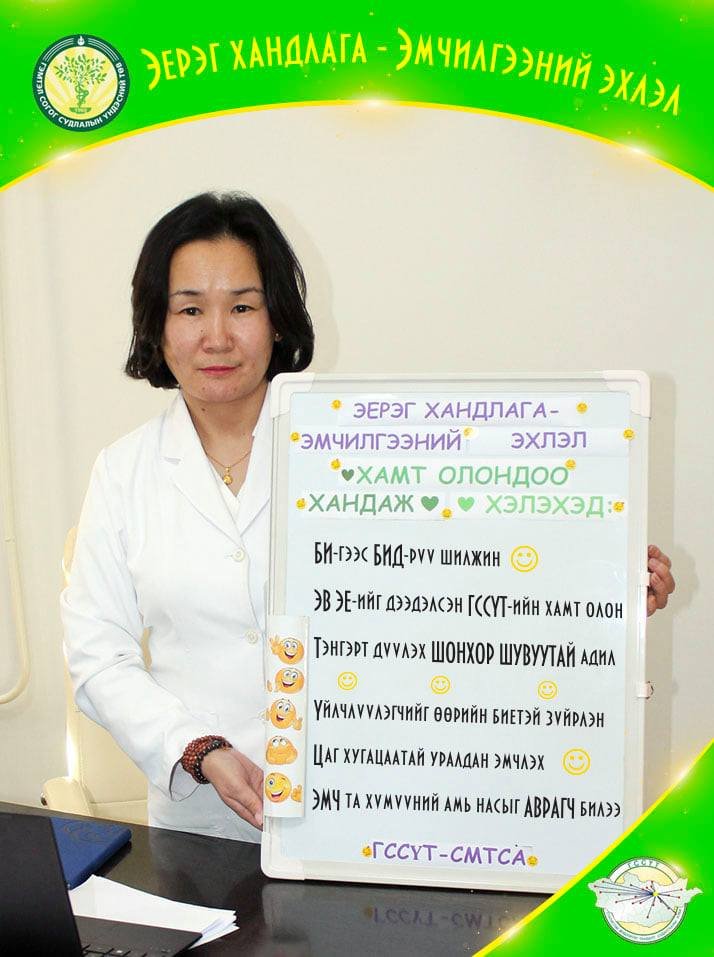 ЭЕРЭГ ХАНДЛАГА - ЭМЧИЛГЭЭНИЙ ЭХЛЭЛ
ГЭМТЭЛ СОГОГ СУДЛАЛЫН ҮНДЭСНИЙ ТӨВ
ЭЕРЭГ ХАНДЛАГА-
ЭМЧИЛГЭЭНИЙ ЭХЛЭЛ
ХАМТ ОЛОНДОО
ХАНДАЖ ХЭЛЭХЭД:
БИ-ГЭЭС БИД-РУУ ШИЛЖИН
ЭВ ЭЕ-ИЙГ ДЭЭДЭЛСЭН ГССҮТ-ИЙН ХАМТ ОЛОН
ТЭНГЭРТ ДҮҮЛЭХ ШОНХОР ШУВУУТАЙ АДИЛ
ҮЙЛЧЛҮҮЛЭГЧИЙГ ӨӨРИЙН БИЕТЭЙ ЗҮЙРЛЭН
ЦАГ ХУГАЦААТАЙ УРАЛДАН ЭМЧЛЭХ
ЭМЧ ТА ХҮМҮҮНИЙ АМЬ НАСЫГ АВРАГЧ БИЛЭЭ
ГССҮТ-СМТСА
ГССҮТ